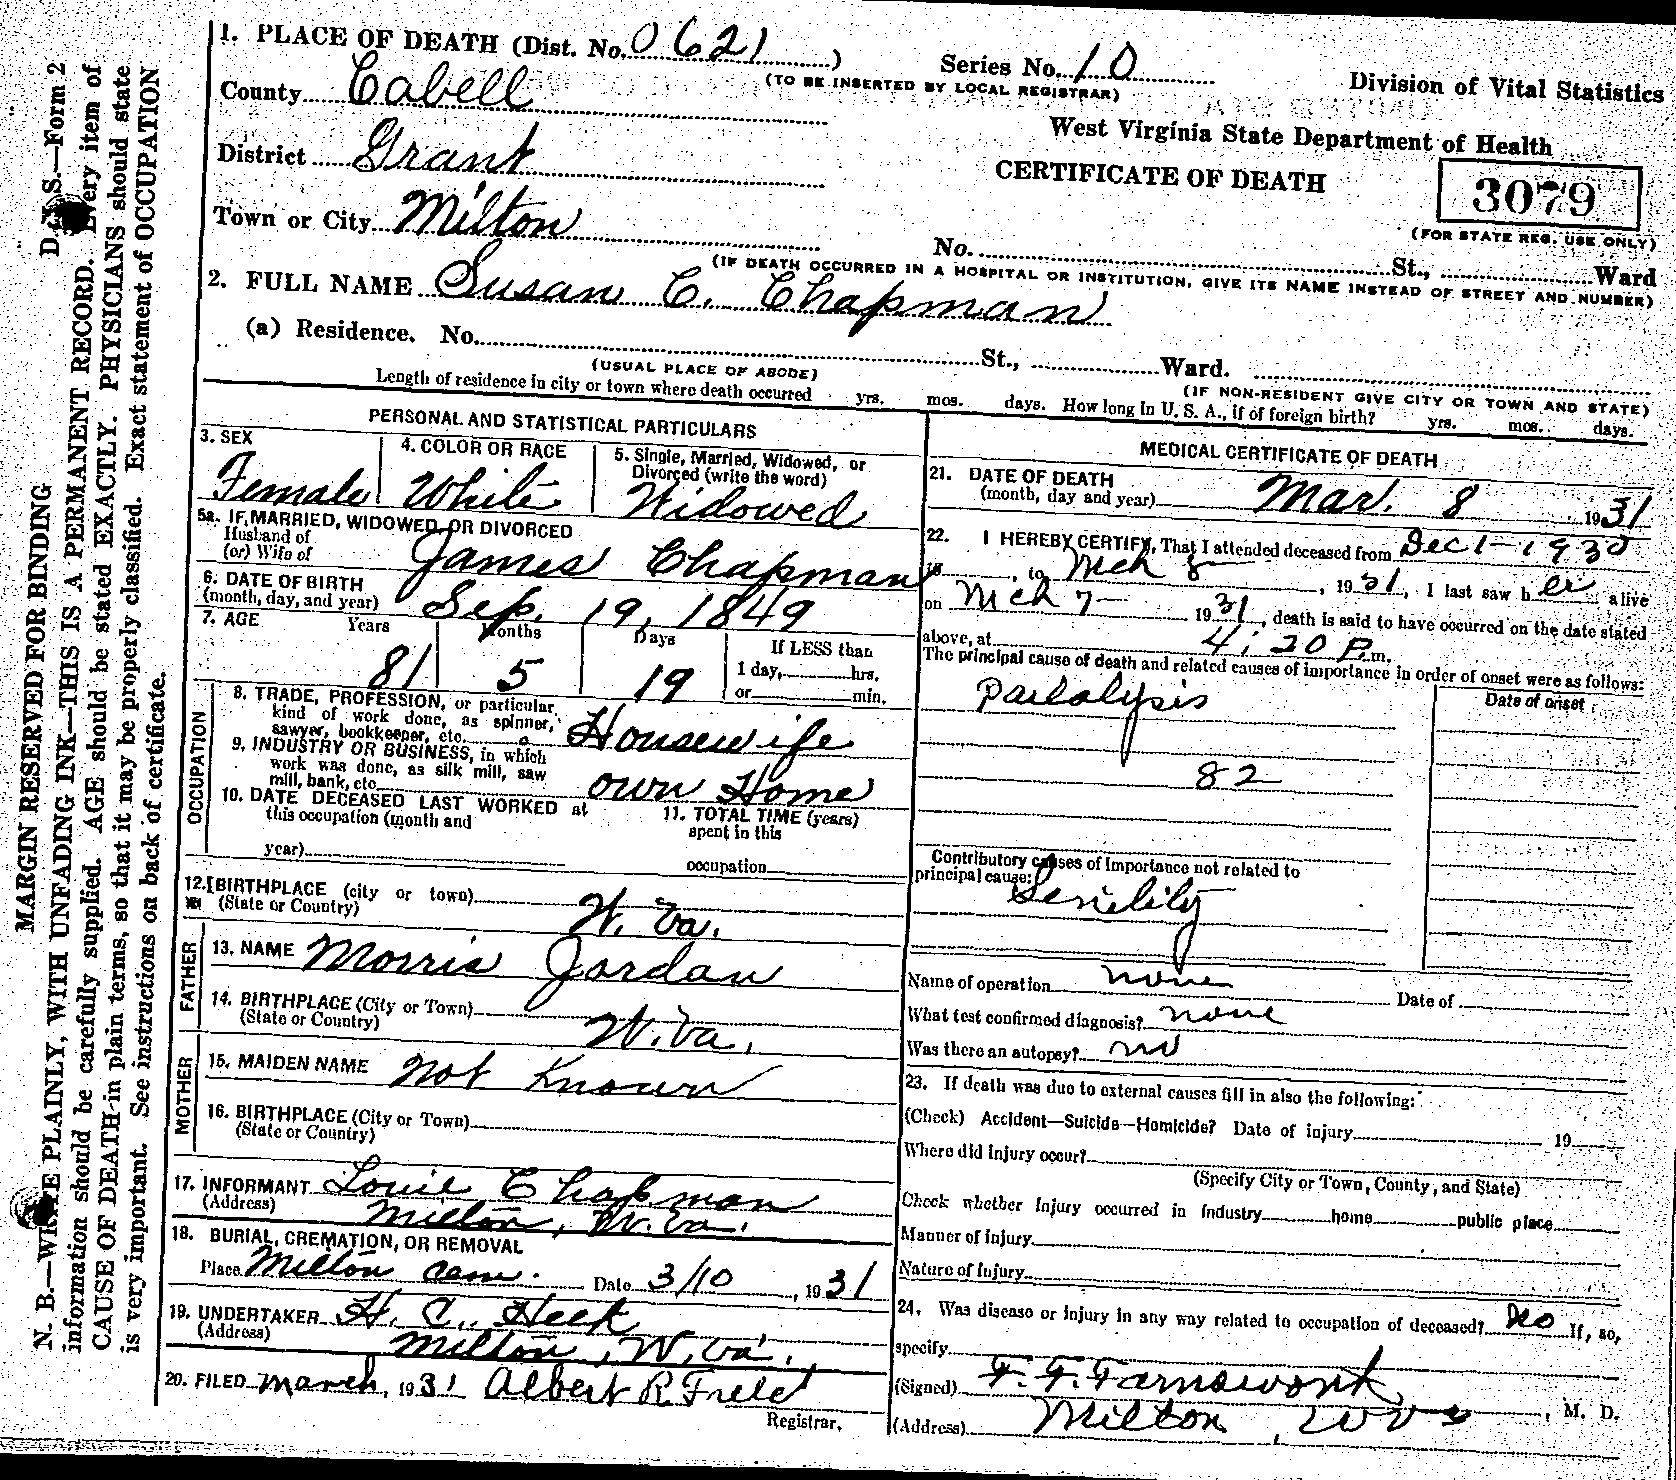 1. PLACE OF DEATH (Dist. No. 0621)
Series No. 10
(TO BE INSERTED BY LOCAL REGISTRAR)
Division of Vital Statistics
County Cabell
West Virginia State Department of Health
District Grant
CERTIFICATE OF DEATH
3079
(FOR STATE REG. USE ONLY)
Town or City Milton
No. St., Ward
(IF DEATH OCCURRED IN A HOSPITAL OR INSTITUTION, GIVE ITS NAME INSTEAD OF STREET AND NUMBER)
2. FULL NAME Susan C. Chapman
(a) Residence. No. St., Ward.
(USUAL PLACE OF ABODE)
(IF NON-RESIDENT GIVE CITY OR TOWN AND STATE)
Length of residence in city or town where death occurred yrs. mos. days. How long in U. S. A., if of foreign birth? yrs. mos. days.
PERSONAL AND STATISTICAL PARTICULARS
3. SEX
Female
4. COLOR OR RACE
White
5. Single, Married, Widowed, or
Divorced (write the word)
Widowed
5a. IF MARRIED, WIDOWED OR DIVORCED
Husband of
(or) Wife of James Chapman
6. DATE OF BIRTH
(month, day, and year) Sep. 19, 1849
7. AGE Years Months Days If LESS than
81 5 19 1 day, hrs.
or min.
OCCUPATION
8. TRADE, PROFESSION, or particular
kind of work done, as spinner,
sawyer, bookkeeper, etc. Housewife
9. INDUSTRY OR BUSINESS, in which
work was done, as silk mill, saw
mill, bank, etc. own Home
10. DATE DECEASED LAST WORKED at
this occupation (month and
year)
11. TOTAL TIME (years)
spent in this
occupation
12. BIRTHPLACE (city or town)
(State or Country) W. Va.
FATHER
13. NAME Morris Jordan
14. BIRTHPLACE (City or Town)
(State or Country) W. Va.
MOTHER
15. MAIDEN NAME Not Known
16. BIRTHPLACE (City or Town)
(State or Country)
17. INFORMANT Louie Chapman
(Address) Milton, W. Va.
18. BURIAL, CREMATION, OR REMOVAL
Place Milton Cem. Date 3/10, 1931
19. UNDERTAKER H. C. Heck
(Address) Milton, W. Va.
20. FILED March, 1931 Albert R.
Registrar.
MEDICAL CERTIFICATE OF DEATH
21. DATE OF DEATH
(month, day and year) Mar. 8 1931
22. I HEREBY CERTIFY, That I attended deceased from Dec 1 - 1930
19, to Mch 8, 1931, I last saw her alive
on Mch 7 - 1931, death is said to have occurred on the date stated
above, at 4:20 P. m.
The principal cause of death and related causes of importance in order of onset were as follows:
Date of onset
Paralysis
82
Contributory causes of importance not related to
principal cause:
Senility
Name of operation none Date of
What test confirmed diagnosis? none
Was there an autopsy? no
23. If death was due to external causes fill in also the following:
(Check) Accident—Suicide—Homicide? Date of injury 19
Where did injury occur?
(Specify City or Town, County, and State)
Check whether injury occurred in industry home public place
Manner of injury
Nature of injury
24. Was disease or injury in any way related to occupation of deceased? No If, so,
specify
(Signed) F. F. Farnsworth, M. D.
(Address) Milton, W Va
D. V. S.—Form 2
MARGIN RESERVED FOR BINDING
N. B.—WRITE PLAINLY, WITH UNFADING INK—THIS IS A PERMANENT RECORD. Every item of
information should be carefully supplied. AGE should be stated EXACTLY. PHYSICIANS should state
CAUSE OF DEATH in plain terms, so that it may be properly classified. Exact statement of OCCUPATION
is very important. See instructions on back of certificate.